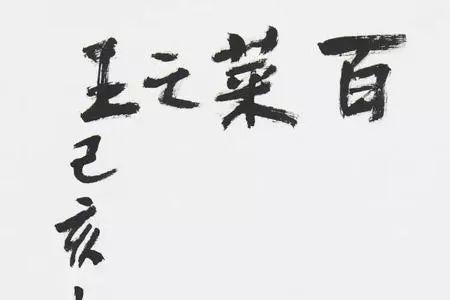 百菜之王
己亥